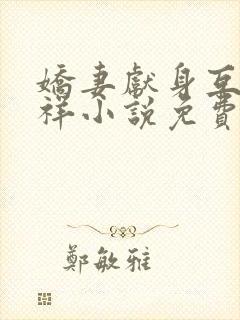 嬌妻獻身互
祥小說免費
鄭敏雅